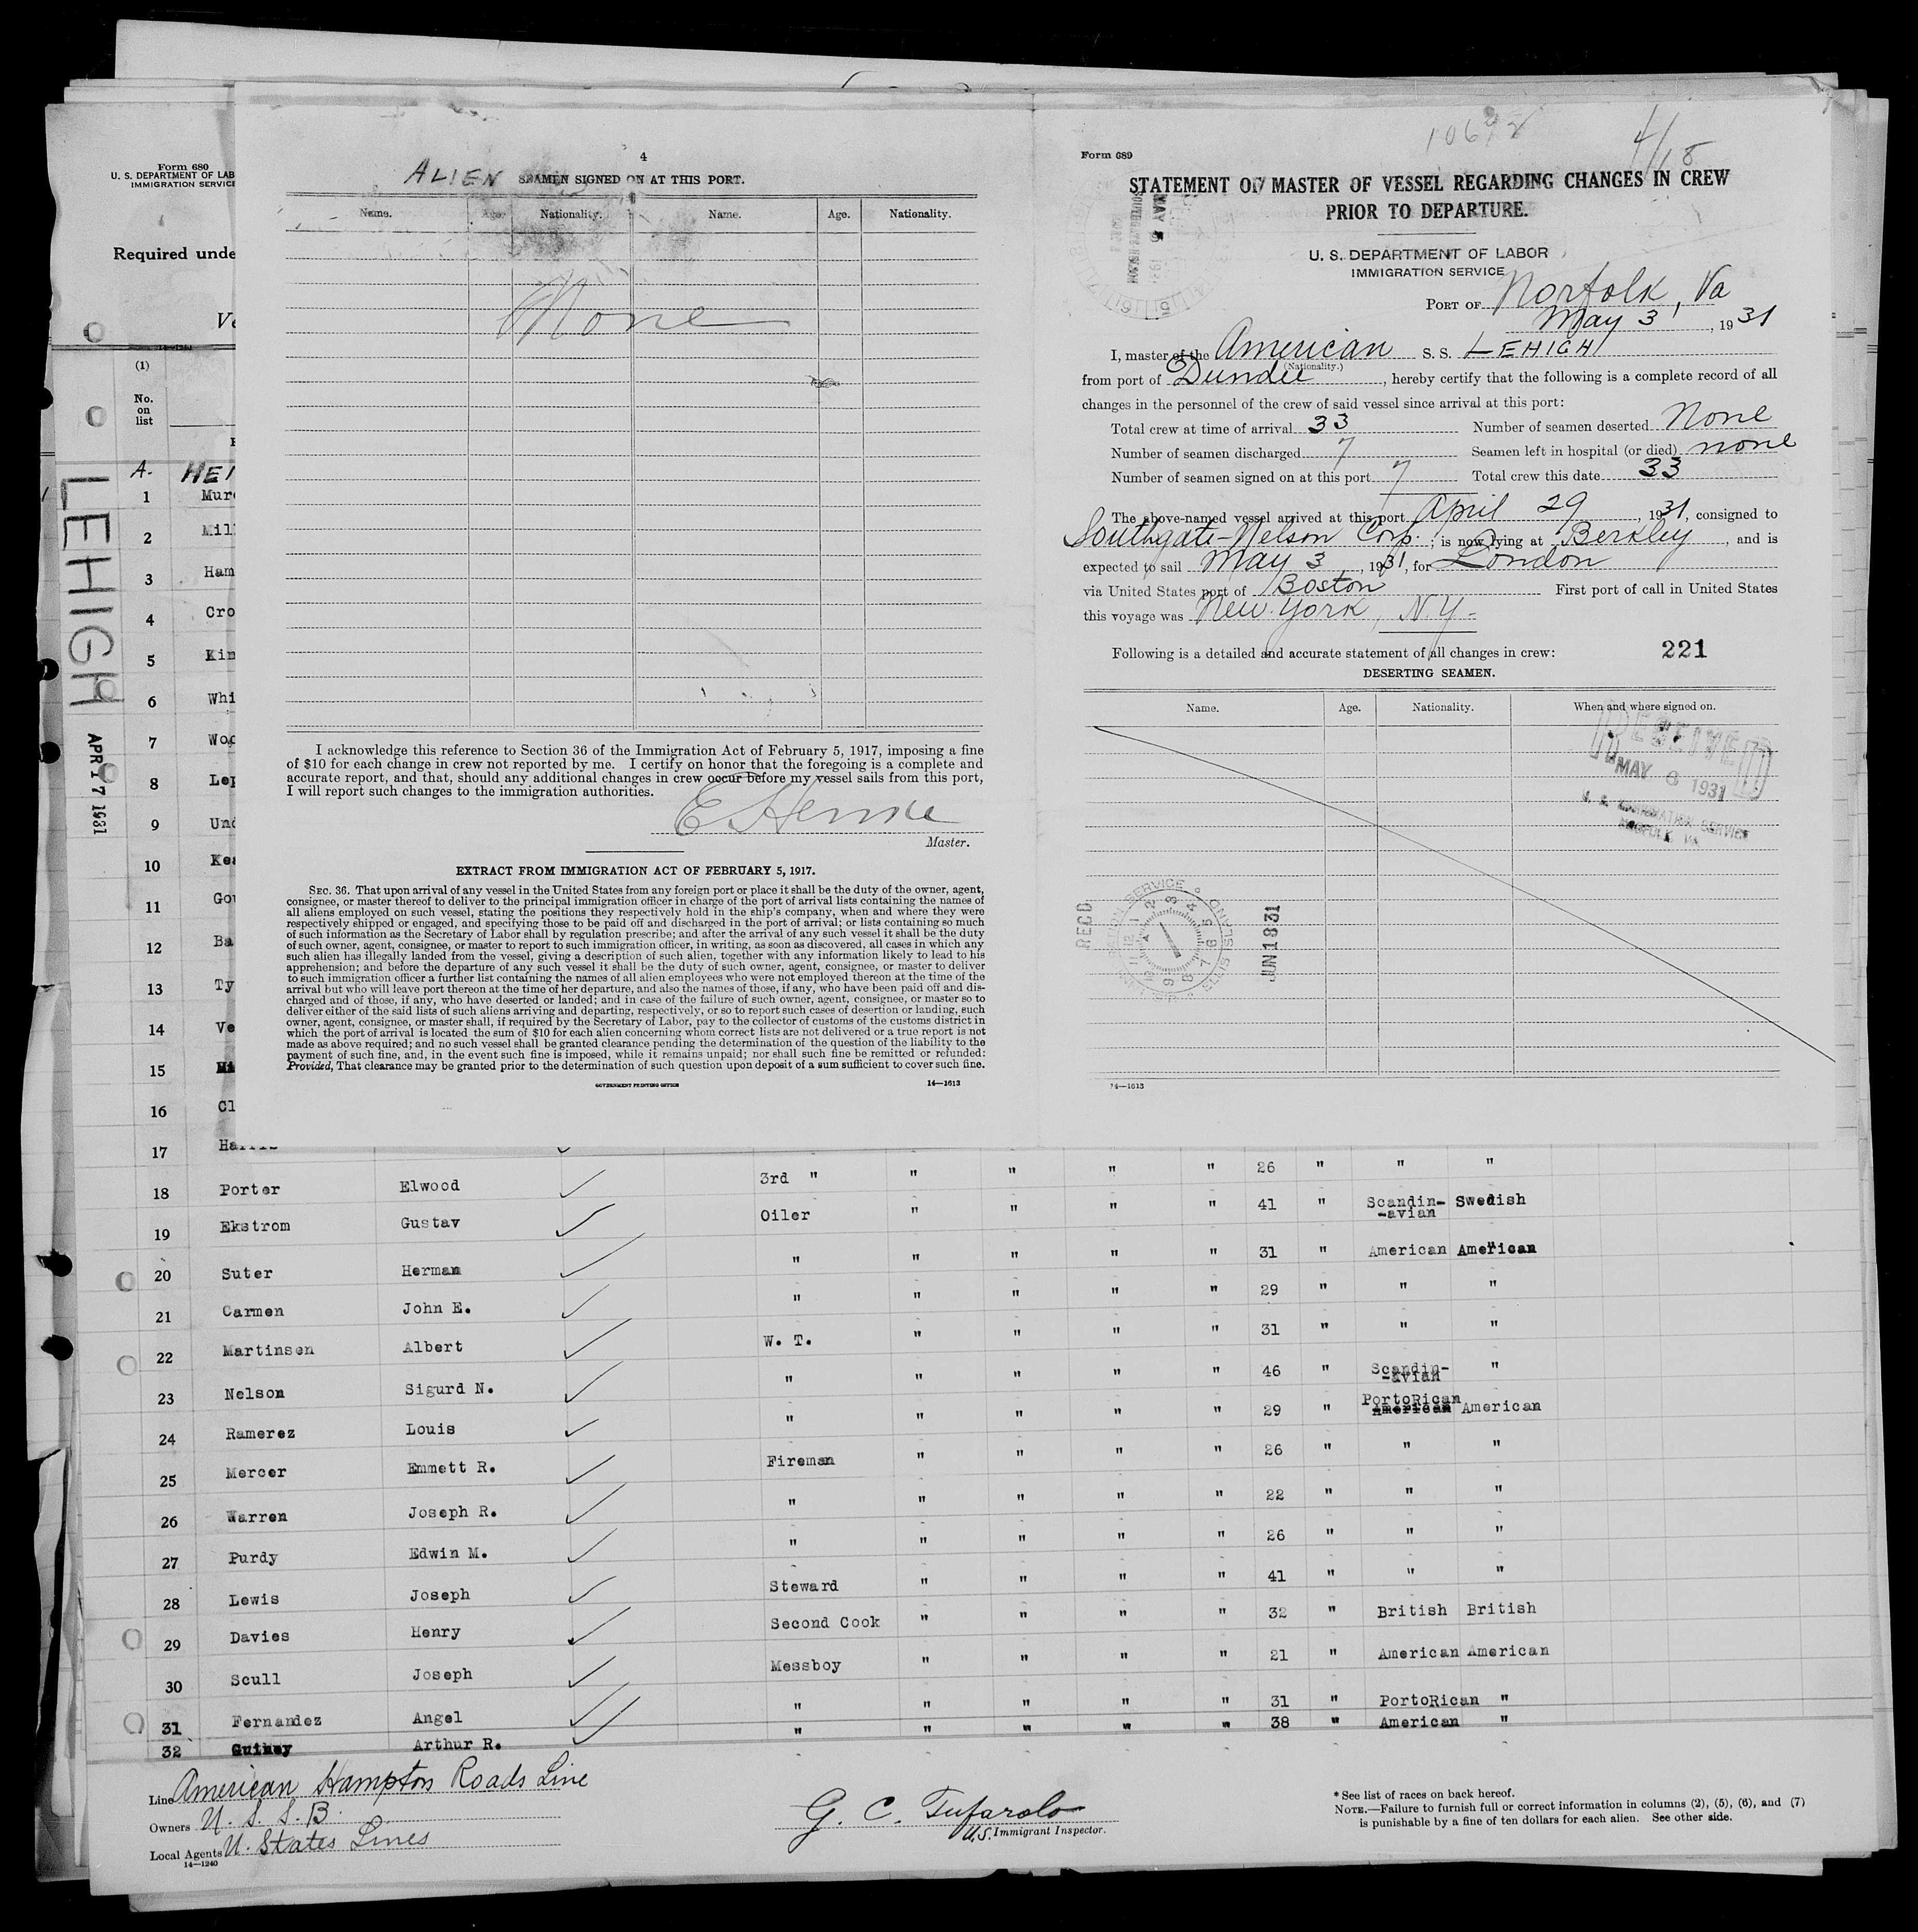 Form 680
U. S. DEPARTMENT OF LAB
IMMIGRATION SERVICE
Required unde
Ve
(1)
No.
on
list
A. HEI
LEHIGH
APR 17 1931
1 Murd
2 Mill
3 Ham
4 Cro
5 Kin
6 Whi
7 Woo
8 Lep
9 Und
10 Kea
11 Gou
12 Ba
13 Ty
14 Ve
15 Mi
16 Cl
17 Harris
4
ALIEN SEAMEN SIGNED ON AT THIS PORT.
Name. Age. Nationality. Name. Age. Nationality.
None
I acknowledge this reference to Section 36 of the Immigration Act of February 5, 1917, imposing a fine
of $10 for each change in crew not reported by me. I certify on honor that the foregoing is a complete and
accurate report, and that, should any additional changes in crew occur before my vessel sails from this port,
I will report such changes to the immigration authorities.
Master.
EXTRACT FROM IMMIGRATION ACT OF FEBRUARY 5, 1917.
SEC. 36. That upon arrival of any vessel in the United States from any foreign port or place it shall be the duty of the owner, agent,
consignee, or master thereof to deliver to the principal immigration officer in charge of the port of arrival lists containing the names of
all aliens employed on such vessel, stating the positions they respectively hold in the ship's company, when and where they were
respectively shipped or engaged, and specifying those to be paid off and discharged in the port of arrival; or lists containing so much
of such information as the Secretary of Labor shall by regulation prescribe; and after the arrival of any such vessel it shall be the duty
of such owner, agent, consignee, or master to report to such immigration officer, in writing, as soon as discovered, all cases in which any
such alien has illegally landed from the vessel, giving a description of such alien, together with any information likely to lead to his
apprehension; and before the departure of any such vessel it shall be the duty of such owner, agent, consignee, or master to deliver
to such immigration officer a further list containing the names of all alien employees who were not employed thereon at the time of the
arrival but who will leave port thereon at the time of her departure, and also the names of those, if any, who have been paid off and dis-
charged and of those, if any, who have deserted or landed; and in case of the failure of such owner, agent, consignee, or master so to
deliver either of the said lists of such aliens arriving and departing, respectively, or so to report such cases of desertion or landing, such
owner, agent, consignee, or master shall, if required by the Secretary of Labor, pay to the collector of customs of the customs district in
which the port of arrival is located the sum of $10 for each alien concerning whom correct lists are not delivered or a true report is not
made as above required; and no such vessel shall be granted clearance pending the determination of the question of the liability to the
payment of such fine, and, in the event such fine is imposed, while it remains unpaid; nor shall such fine be remitted or refunded:
Provided, That clearance may be granted prior to the determination of such question upon deposit of a sum sufficient to cover such fine.
GOVERNMENT PRINTING OFFICE 14—1613
4/18
Form 689
STATEMENT OF MASTER OF VESSEL REGARDING CHANGES IN CREW
PRIOR TO DEPARTURE.
U. S. DEPARTMENT OF LABOR
IMMIGRATION SERVICE
PORT OF Norfolk, Va
May 3, 1931
I, master of the American S. S. LEHIGH
(Nationality.)
from port of Dundee, hereby certify that the following is a complete record of all
changes in the personnel of the crew of said vessel since arrival at this port:
Total crew at time of arrival 33 Number of seamen deserted None
Number of seamen discharged 7 Seamen left in hospital (or died) none
Number of seamen signed on at this port 7 Total crew this date 33
The above-named vessel arrived at this port April 29, 1931, consigned to
Southgate-Nelson Corp.; is now lying at Berkley, and is
expected to sail May 3, 1931, for London
via United States port of Boston First port of call in United States
this voyage was New York, N.Y.
Following is a detailed and accurate statement of all changes in crew: 221
DESERTING SEAMEN.
Name. Age. Nationality. When and where signed on.
RECEIVED
MAY 6 1931
U. S. IMMIGRATION SERVICE
NORFOLK, VA
RECD
ELLIS ISLAND
JUN 1 1931
14—1613
3rd " " " " " 26 " " "
18 Porter Elwood
Oiler " " " " 41 " Scandin-
-avian Swedish
19 Ekstrom Gustav
" " " " " 31 " American American
20 Suter Herman
" " " " " 29 " " "
21 Carmen John E.
W. T. " " " " 31 " " "
22 Martinsen Albert
" " " " " 46 " Scandin-
-avian "
23 Nelson Sigurd N.
" " " " " 29 " PortoRican
American American
24 Ramerez Louis
Fireman " " " " 26 " " "
25 Mercer Emmett R.
" " " " " 22 " " "
26 Warren Joseph R.
" " " " " 26 " " "
27 Purdy Edwin M.
Steward " " " " 41 " " "
28 Lewis Joseph
Second Cook " " " " 32 " British British
29 Davies Henry
Messboy " " " " 21 " American American
30 Scull Joseph
" " " " " 31 " PortoRican "
31 Fernandez Angel
" " " " " 38 " American "
32 Guiney Arthur R.
Line American Hampton Roads Line
Owners U. S. S. B.
Local Agents U. States Lines
14—1240
G. C. Tufarolo
U.S. Immigrant Inspector.
* See list of races on back hereof.
NOTE.—Failure to furnish full or correct information in columns (2), (5), (6), and (7)
is punishable by a fine of ten dollars for each alien. See other side.